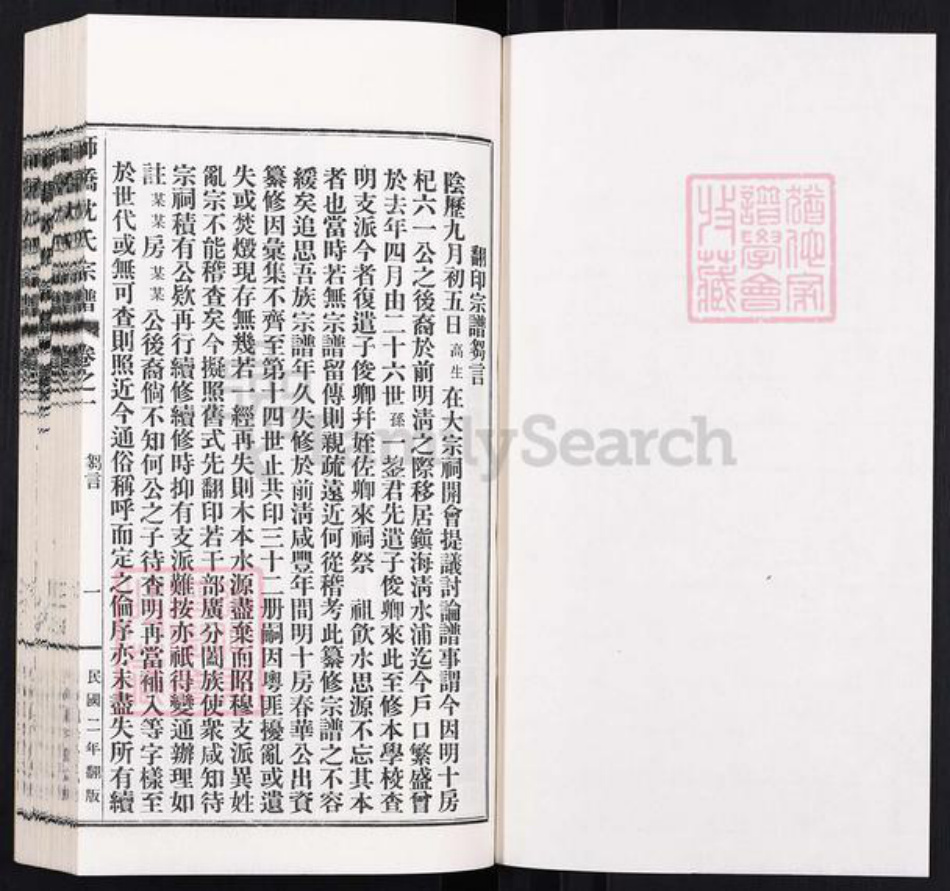 翻印宗譜芻言
陰歷九月初五日高生在大宗祠開會提議討論譜事謂今因明十房
杞六一公之後裔於前明清之際移居鎭海清水浦迄今戶口繁盛曾
於去年四月由二十六世孫鋆君先遣子俊卿來此至修本學校查
明支派今者復遣子俊卿幷姪佐卿來祠祭 祖飲水思源不忘其本
者也當時若無宗譜留傳則親疏遠近何從稽考此纂修宗譜之不容
緩矣追思吾族宗譜年久失修於前淸咸豐年間明十房春華公出資
纂修因彙集不齊至第十四世止共印三十二册嗣因粵匪擾亂或遺
失或焚燬現存無幾若一經再失則木本水源盡棄而昭穆支派異姓
亂宗不能稽查矣今擬照舊式先翻印若干部廣分闔族使衆咸知待
宗祠積有公欵再行續修續修時抑有支派難按亦祇得變通辦理如
註某某房某某公後裔倘不知何公之子待查明再當補入等字樣至
於世代或無可查則照近今通俗稱呼而定之倫序亦未盡失所有續
師橋沈氏宗譜 卷之一 芻言 一 民國二年翻版
FamilySearch
譜學會
收藏